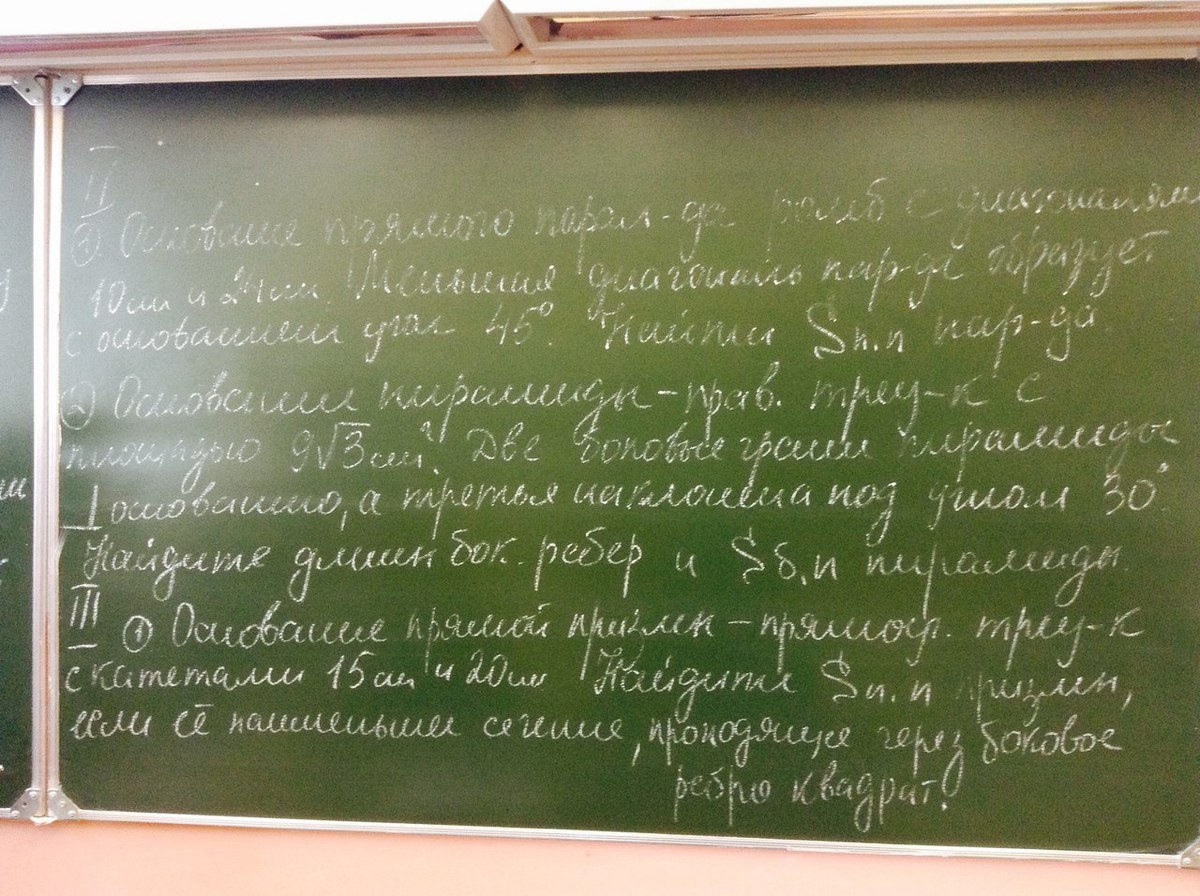 II
① Основание прямого парал-да ромб с диагоналями
10см и 24см. Меньшая диагональ пар-да образует
с основанием угол 45°. Найти Sп.п пар-да.
② Основании пирамиды - прав. треу-к с
площадью 9√3 см². Две боковые грани пирамиды
⊥ основанию, а третья наклонена под углом 30°.
Найдите длин бок. ребер и Sб.п пирамиды.
III
① Основание прямой призмы - прямоуг. треу-к
с катетами 15см и 20см Найдите Sп.п призмы,
если её наименьшее сечение, проходящее через боковое
ребро квадрат.